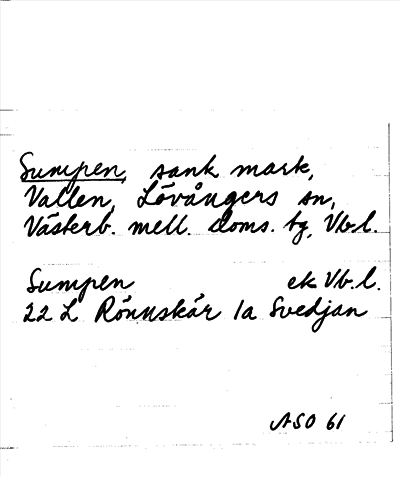 Sumpen, sank mark,
Vallen, Lövångers sn,
Västerb. mell. doms. tg, Vb.l.
Sumpen ek Vb.l.
22 L Rönnskär 1a Svedjan
ASO 61